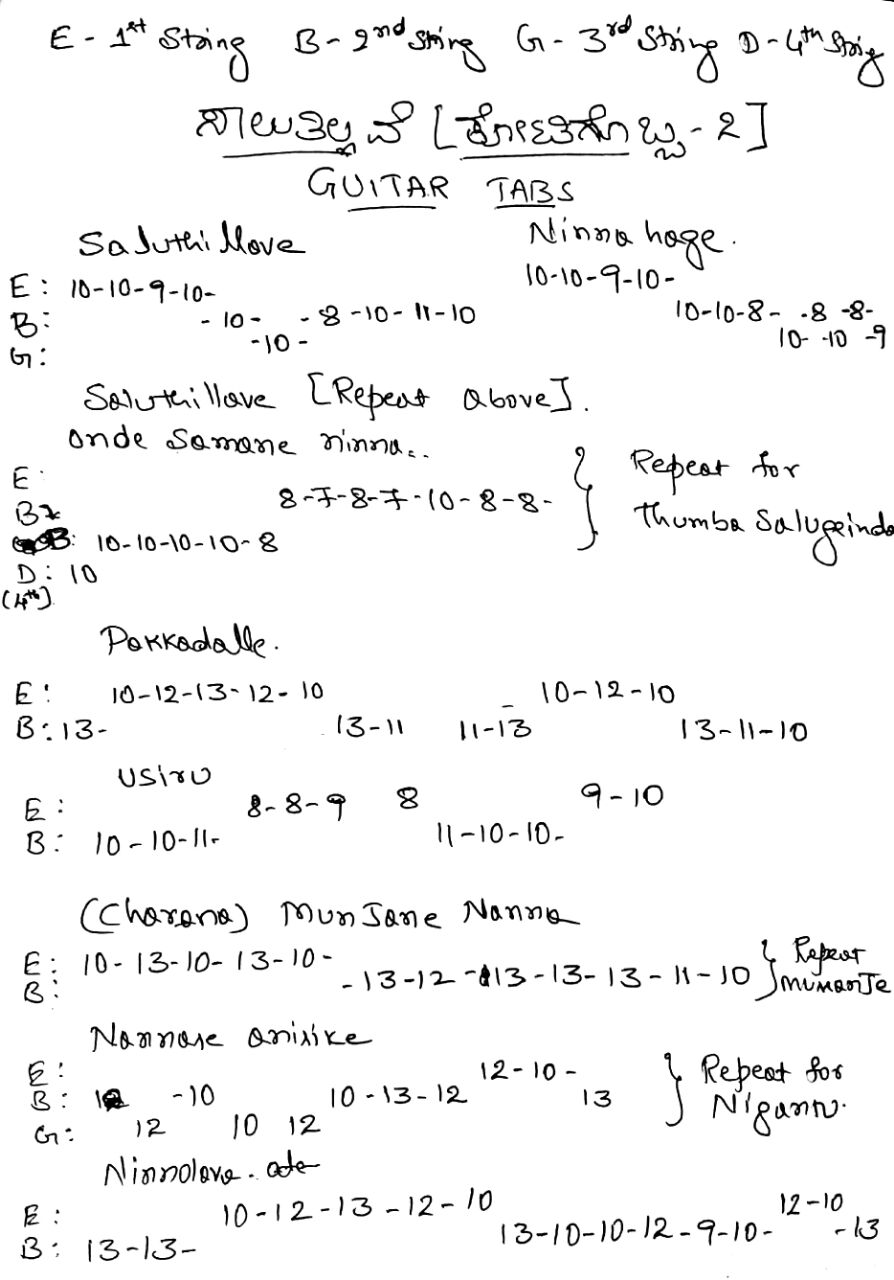 E - 1st String B - 2nd String G - 3rd String D - 4th String
ಸಾಲುತಿಲ್ಲವೆ [ಕೋಟಿಗೊಬ್ಬ - 2]
GUITAR TABS
Saluthillave Ninna hage.
E: 10-10-9-10- 10-10-9-10-
B: -10- -8-10-11-10 10-10-8- -8 -8-
G: -10- 10- -10 -9
Saluthillave [Repeat above].
onde samane ninna..
E
B: 8-7-8-7-10-8-8- } Repeat for Thumba Salugeinda
10-10-10-10-8
D: 10
(4th)
Pakkadalle.
E: 10-12-13-12-10 10-12-10
B: 13- 13-11 11-13 13-11-10
usiru
E: 8-8-9 8 9-10
B: 10-10-11- 11-10-10-
(Charana) MunJane Nanna
E: 10-13-10-13-10- } Repeat
B: -13-12-13-13-13-11-10 mumanJe
Nannase anisike
E: 12-10- } Repeat for
B: -10 10-13-12 13 Niganu.
G: 12 10 12
Ninnolave.
E: 10-12-13-12-10 12-10
B: 13-13- 13-10-10-12-9-10- -13